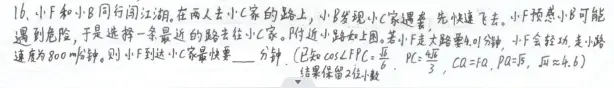 16、小F和小B同行闯江湖。在两人去小C家的路上，小B发现小C家遇袭，先快速飞去。小F预感小B可能
遇到危险，于是选择一条最近的路去往小C家。P附近小路如上图。若小F走大路要4.01分钟，小F会轻功，走小路
速度为800m/分钟。则小F到达小C家最快要____分钟．(已知cos∠FPC=√21/6，PC=4√21/3，CQ=FQ，PQ=√5，√21≈4.6)
结果保留2位小数